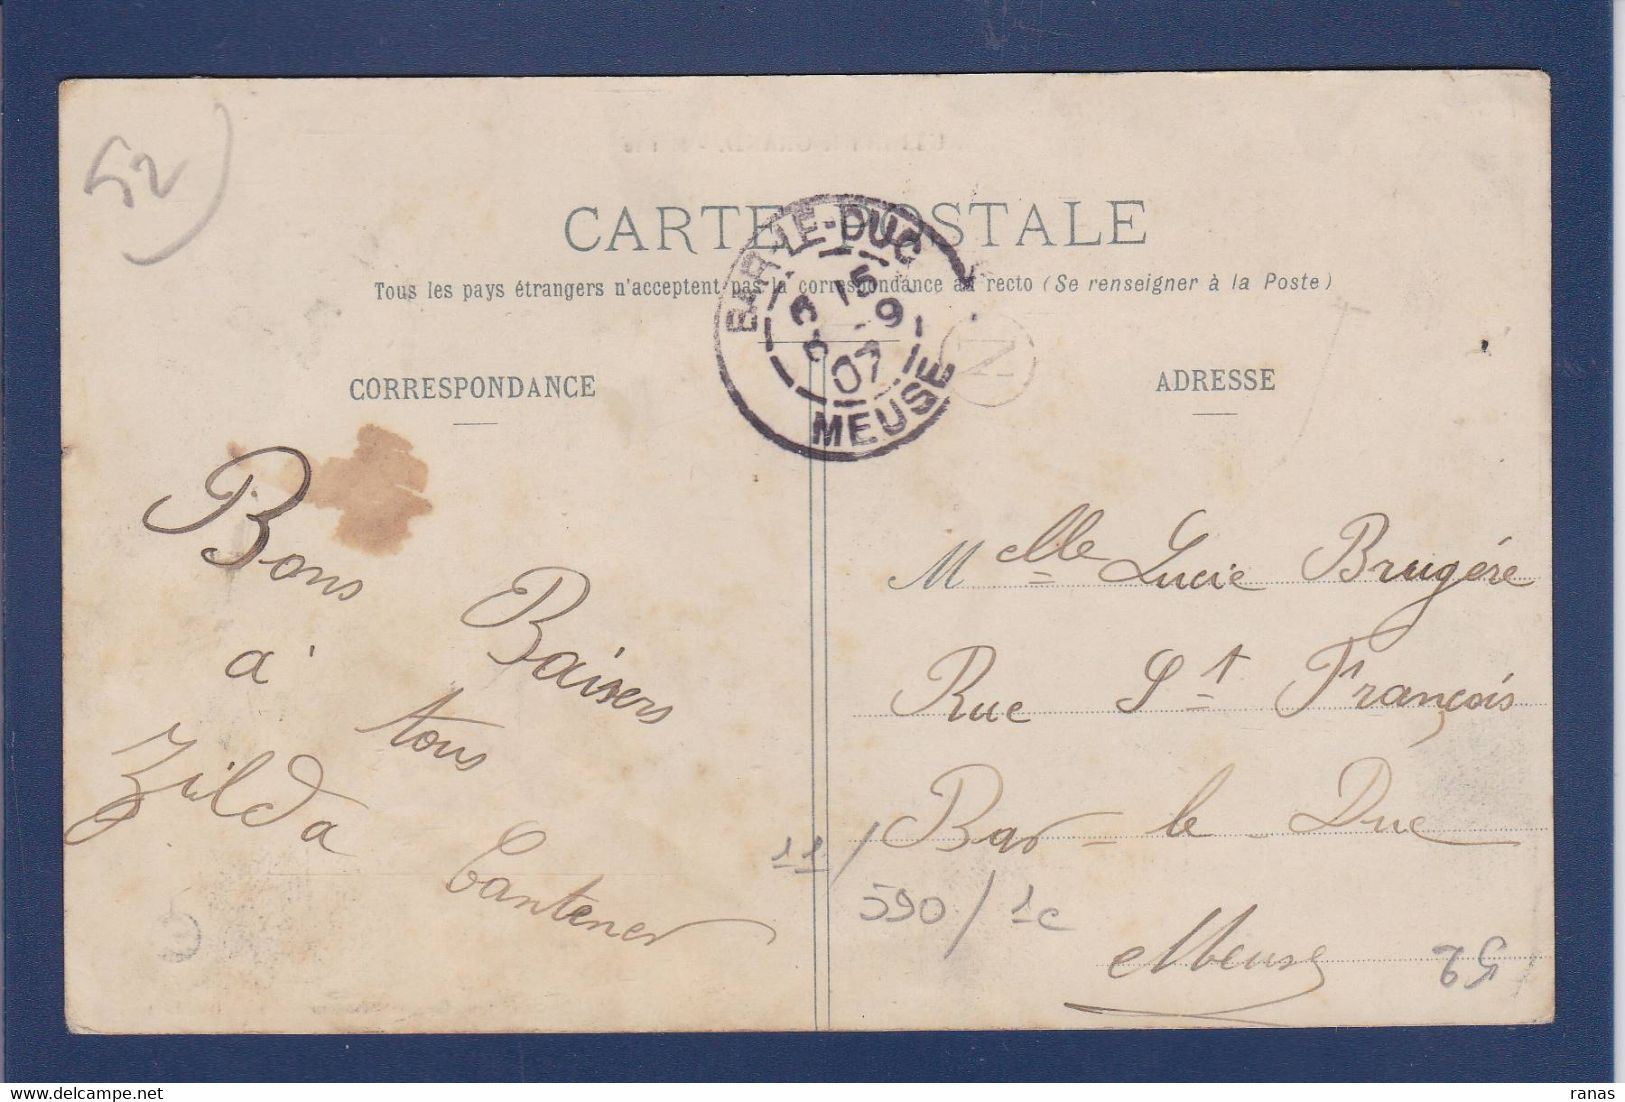 52
CARTE POSTALE
Tous les pays étrangers n'acceptent pas la correspondance au recto (Se renseigner à la Poste)
BAR-LE-DUC
15
9
07
MEUSE
N
CORRESPONDANCE
Bons Baisers
à tous
Zilda
Cantener
ADRESSE
Melle Lucie Brugére
Rue St Françcois
Bar-le-Duc
Meuse
11/
590/1c
52
delcampe.net
ranas